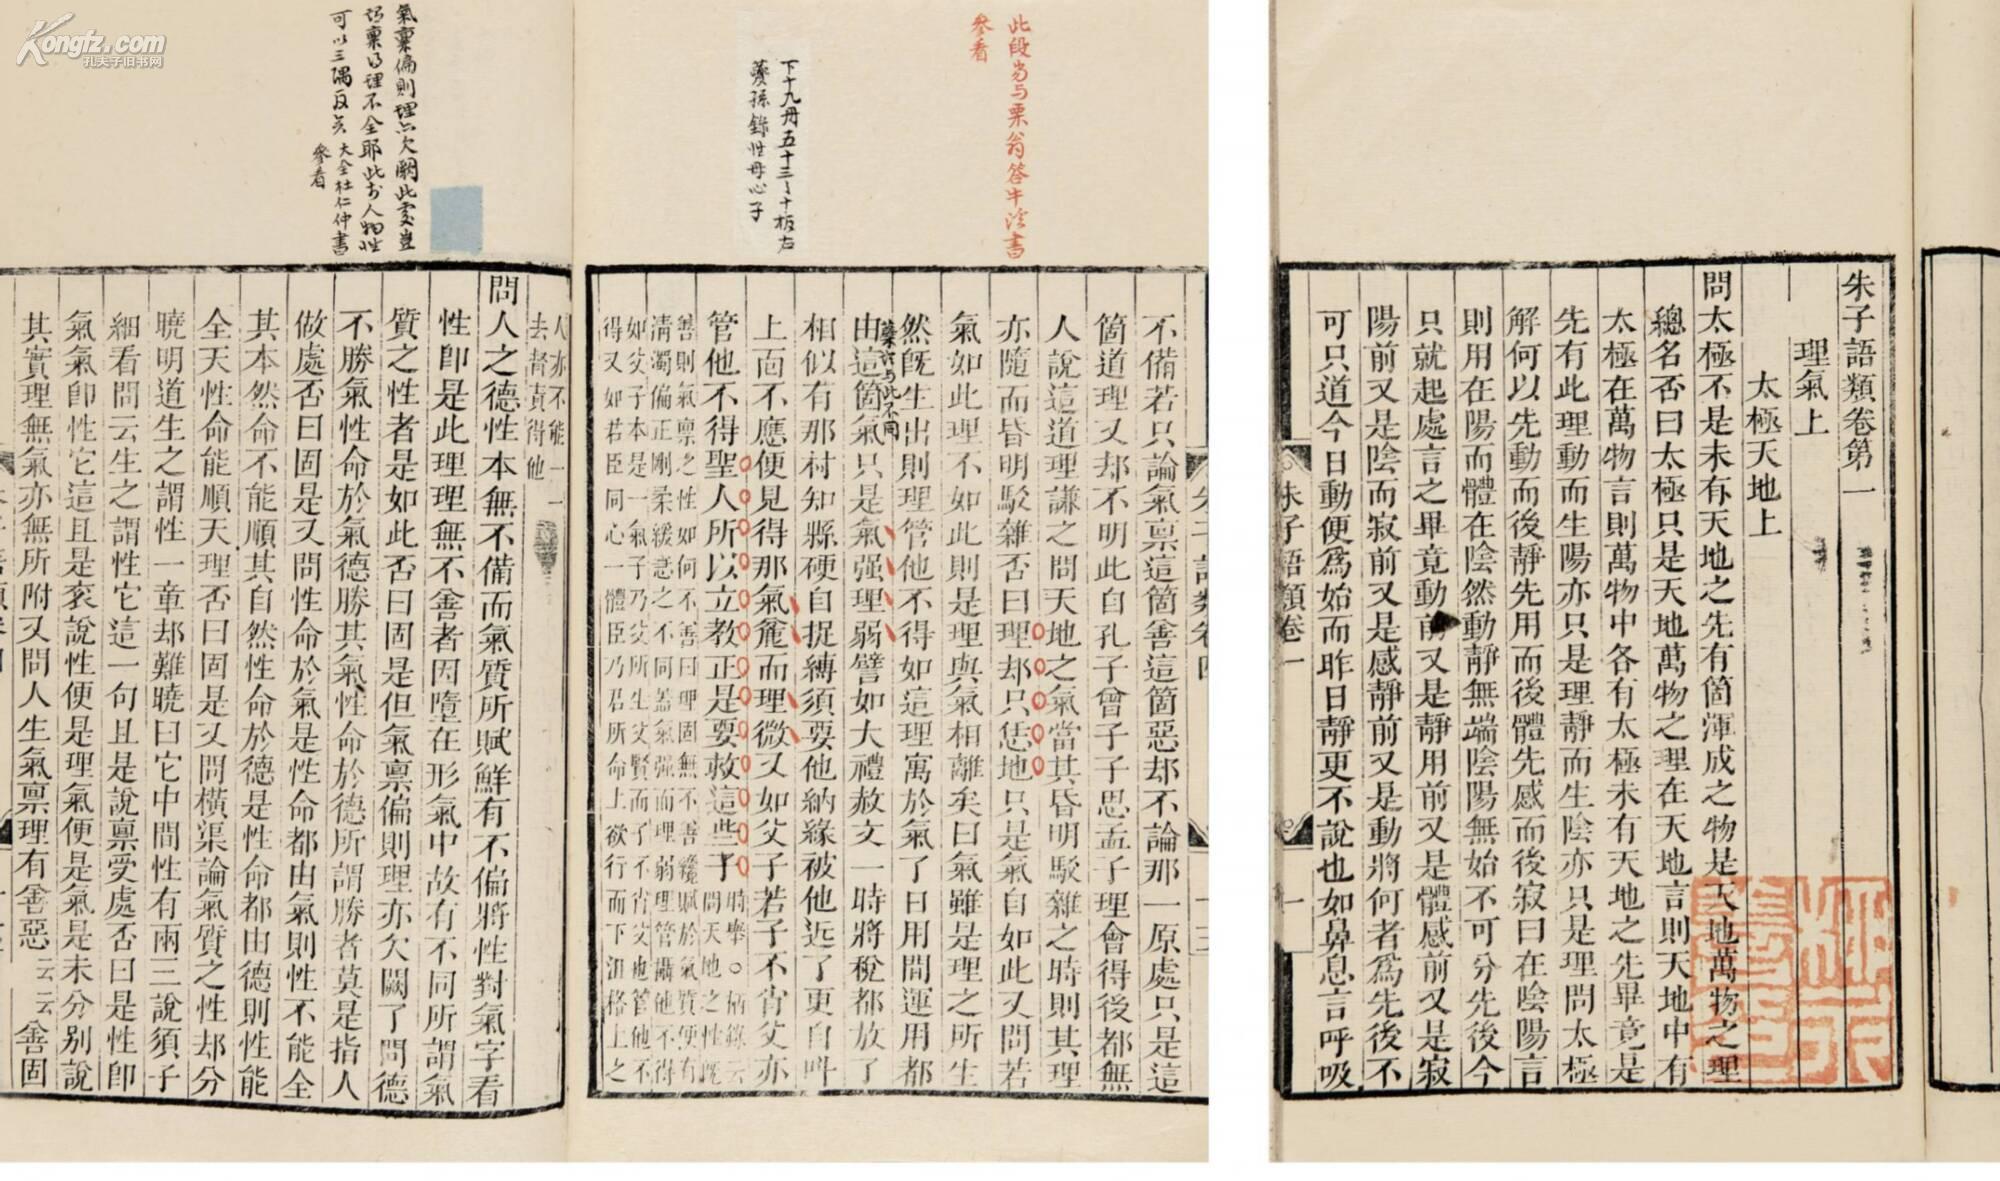 朱子語類卷第一
理氣上
太極天地上
問太極不是未有天地之先有箇渾成之物是天地萬物之理
總名否曰太極只是天地萬物之理在天地言則天地中有
太極在萬物言則萬物中各有太極未有天地之先畢竟是
先有此理動而生陽亦只是理靜而生陰亦只是理問太極
解何以先動而後靜先用而後體先感而後寂曰在陰陽言
則用在陽而體在陰然動靜無端陰陽無始不可分先後今
只就起處言之畢竟動前又是靜用前又是體感前又是寂
陽前又是陰而寂前又是感靜前又是動將何者爲先後不
可只道今日動便爲始而昨日靜更不說也如鼻息言呼吸
朱子語類卷一
一
此段當与栗翁答牛溪書
參看
下十九冊五十三之十板右
夔孫錄性毋心子
不備若只論氣稟這箇善這箇惡却不論那一原處只是這
箇道理又却不明此自孔子曾子子思孟子理會得後都無
人說這道理謙之問天地之氣當其昏明駁雜之時則其理
亦隨而昏明駁雜否曰理却只恁地只是氣自如此又問若
氣如此理不如此則是理與氣相離矣曰氣雖是理之所生
然旣生出則理管他不得如這理寓於氣了日用間運用都
由這箇氣只是氣强理弱譬如大禮赦文一時將稅都放了
相似有那村知縣硬自捉縛須要他納緣被他近了更自呌
上面不應便見得那氣麄而理微又如父子若子不肖父亦
管他不得聖人所以立教正是要救這些子時舉○柄錄云
問天地之性旣
善則氣稟之性如何不善曰理固無不善纔賦於氣質便有
清濁偏正剛柔緩急之不同蓋氣强而理弱理管攝他不得
如父子本是一氣子乃父所生父賢而子不肖父也管他不
得又如君臣同心一體臣乃君所命上欲行而下沮格上之
氣稟偏則理亦欠闕此處豈
理不全耶此於人物性
可以三隅反矣大全杜仁仲書
參看
人亦不能一一
去督責得他
問人之德性本無不備而氣質所賦鮮有不偏將性對氣字看
性卽是此理理無不善者因墮在形氣中故有不同所謂氣
質之性者是如此否曰固是但氣稟偏則理亦欠闕了問德
不勝氣性命於氣德勝其氣性命於德所謂勝者莫是指人
做處否曰固是又問性命於氣是性命都由氣則性不能全
其本然命不能順其自然性命於德是性命都由德則性能
全天性命能順天理否曰固是又問橫渠論氣質之性却分
曉明道生之謂性一章却難曉曰它中間性有兩三說須子
細看問云生之謂性它這一句且是說稟受處否曰是性卽
氣氣卽性它這且是衮說性便是理氣便是氣是未分别說
其實理無氣亦無所附又問人生氣稟理有善惡云云善固
Kongfz.com
孔夫子旧书网